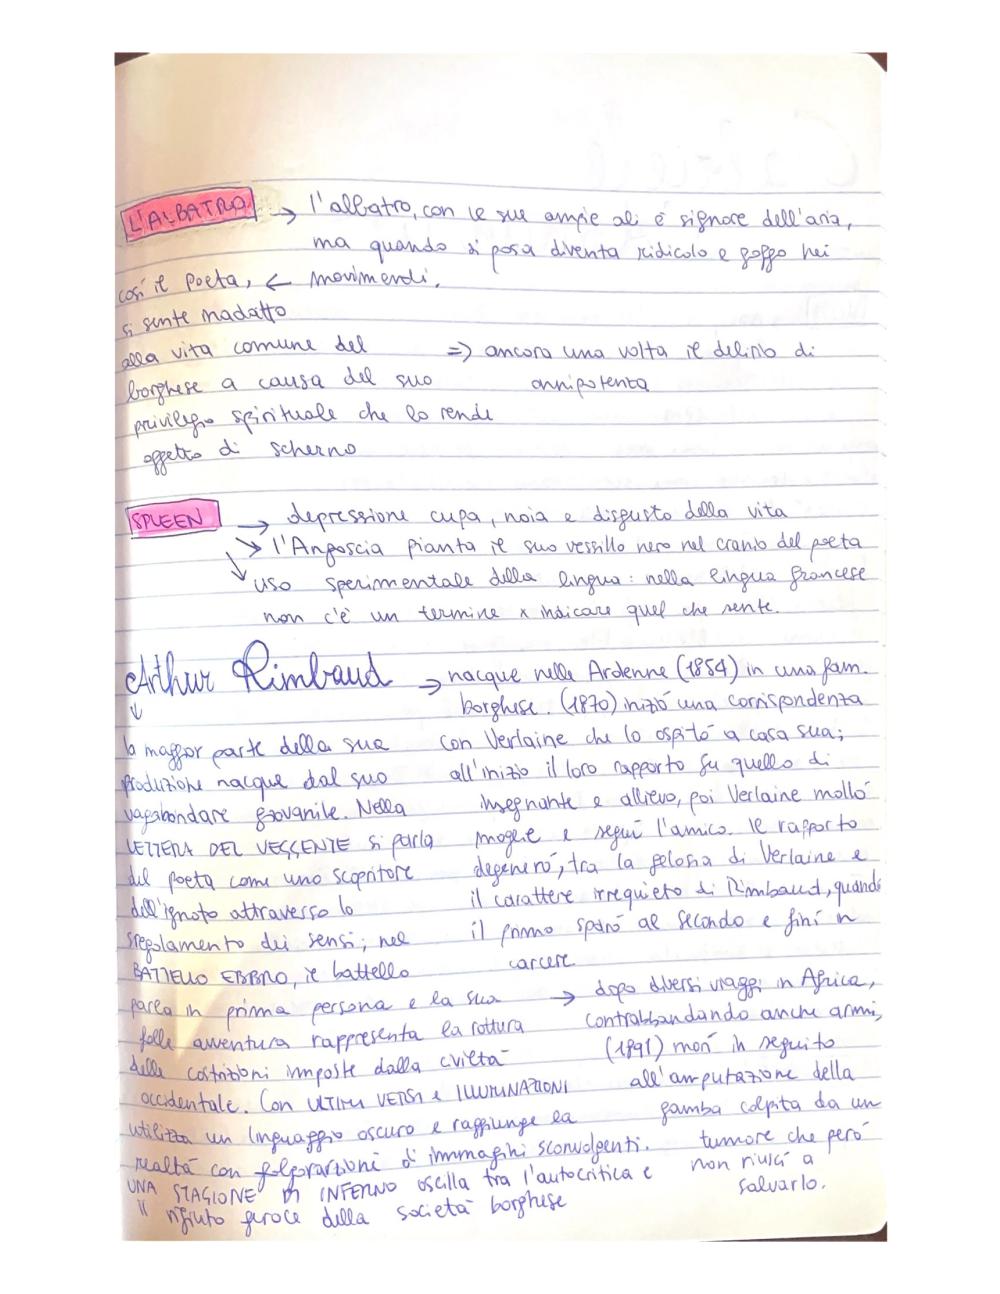 L'ALBATRO → l'albatro, con le sue ampie ali è signore dell'aria,
ma quando si posa diventa ridicolo e goffo nei
movimendi.
così il poeta, ←
si sente inadatto
alla vita comune del
borghese a causa del suo
privilegio spirituale che lo rende
oggetto di scherno
=> ancora una volta il delirio di
onnipotenza
SPLEEN → depressione cupa, noia e disgusto della vita
→ l'Angoscia pianta il suo vessillo nero nel cranio del poeta
↓ uso sperimentale della lingua: nella lingua francese
non c'è un termine x indicare quel che sente.
Arthur Rimbaud
→ nacque nelle Ardenne (1854) in una fam.
borghese. (1870) iniziò una corrispondenza
con Verlaine che lo ospitò a casa sua;
all'inizio il loro rapporto fu quello di
insegnante e allievo, poi Verlaine mollò
moglie e seguì l'amico. Il rapporto
degenerò, tra la gelosia di Verlaine e
il carattere irrequieto di Rimbaud, quando
il primo sparò al secondo e finì in
carcere
→ dopo diversi viaggi in Africa,
contrabbandando anche armi,
(1891) morì in seguito
all'amputazione della
gamba colpita da un
tumore che però
non riuscì a
salvarlo.
↓
la maggior parte della sua
produzione nacque dal suo
vagabondare giovanile. Nella
LETTERA DEL VEGGENTE si parla
del poeta come uno scopritore
dell'ignoto attraverso lo
sregolamento dei sensi; nel
BATTELLO EBBRO, il battello
parla in prima persona e la sua
folle avventura rappresenta la rottura
delle costrizioni imposte dalla civiltà
occidentale. Con ULTIMI VERSI e ILLUMINAZIONI
utilizza un linguaggio oscuro e raggiunge la
realtà con folgorazioni di immagini sconvolgenti.
UNA STAGIONE IN INFERNO oscilla tra l'autocritica e
il rifiuto feroce della società borghese